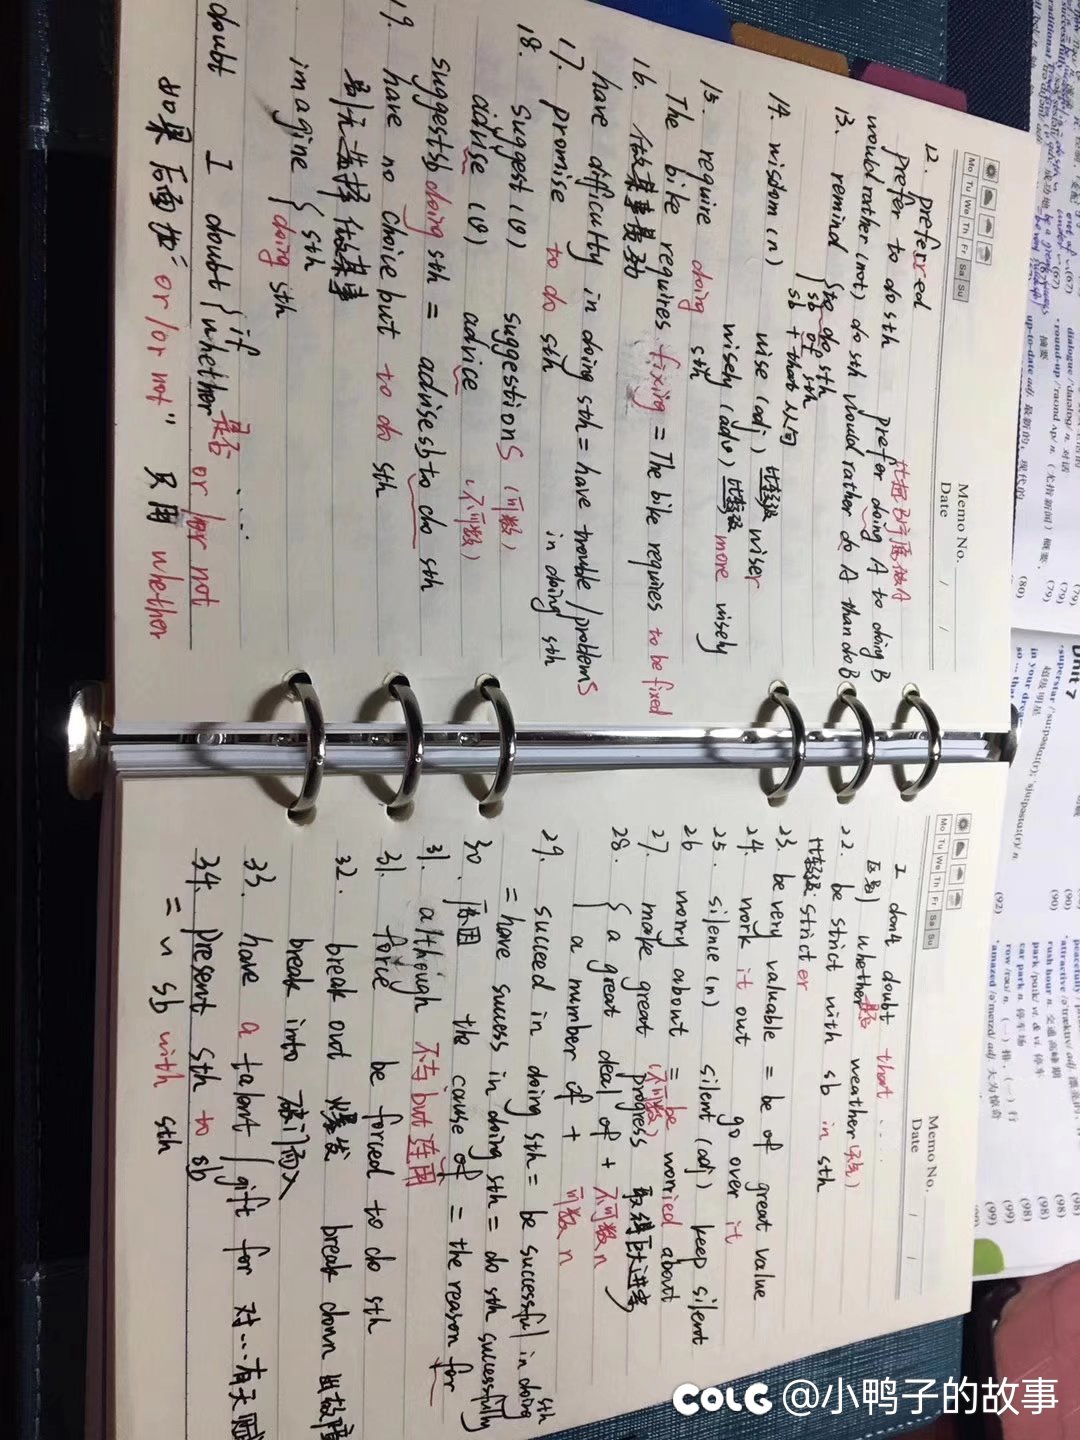 Memo No.
Mo Tu We Th Fr Sa Su
Date / /
12. preferred
prefer to do sth prefer doing A to doing B
would rather (not) do sth would rather do A than do B
13. remind
sb to do sth
sb of sth
sb + that 从句
14. wisdom (n) wise (adj) 比较级 wiser
wisely (adv) 比较级 more wisely
15. require doing sth
The bike requires fixing = The bike requires to be fixed
16. 做某事费劲
have difficulty in doing sth = have trouble / problems in doing sth
17. promise to do sth
18. suggest (v) suggestions (可数)
advise (v) advice (不可数)
suggest sb doing sth = advise sb to do sth
19. have no choice but to do sth
别无选择做某事
imagine { sth
doing sth
doubt I doubt { if
whether 是否 or / or not
如果后面加“or / or not” 只用 whether
Memo No.
Mo Tu We Th Fr Sa Su
Date / /
I don't doubt that ....
区别 whether 是否 weather (天气)
22. be strict with sb in sth
比较级: stricter
23. be very valuable = be of great value
24. work it out go over it
25. silence (n) silent (adj) keep silent
26 worry about = be worried about
27. make great progress (不可数) 取得巨大进步
28. { a great deal of + 不可数 n
a number of + 可数 n
29. succeed in doing sth = be successful in doing sth
= have success in doing sth = do sth successfully
30. 原因 the cause of = the reason for
31. although 不与but连用
31. force be forced to do sth
32. break out 爆发 break down 出故障
break into 破门而入
33. have a talent / gift for 对...有天赋
34. present sth to sb
= ~ sb with sth
dialogue 对话
(79)
(79)
(80)
摘要
up-to-date adj. 最新的; 现代的
Unit 7
superstar 超级明星
in your dreams
so ... that
(90)
(90)
(92)
rush hour n. 交通高峰期
car park n. 停车场
amazed adj. 大为惊奇
(98)
(98)
(98)
(99)
(99)
COLG @小鸭子的故事